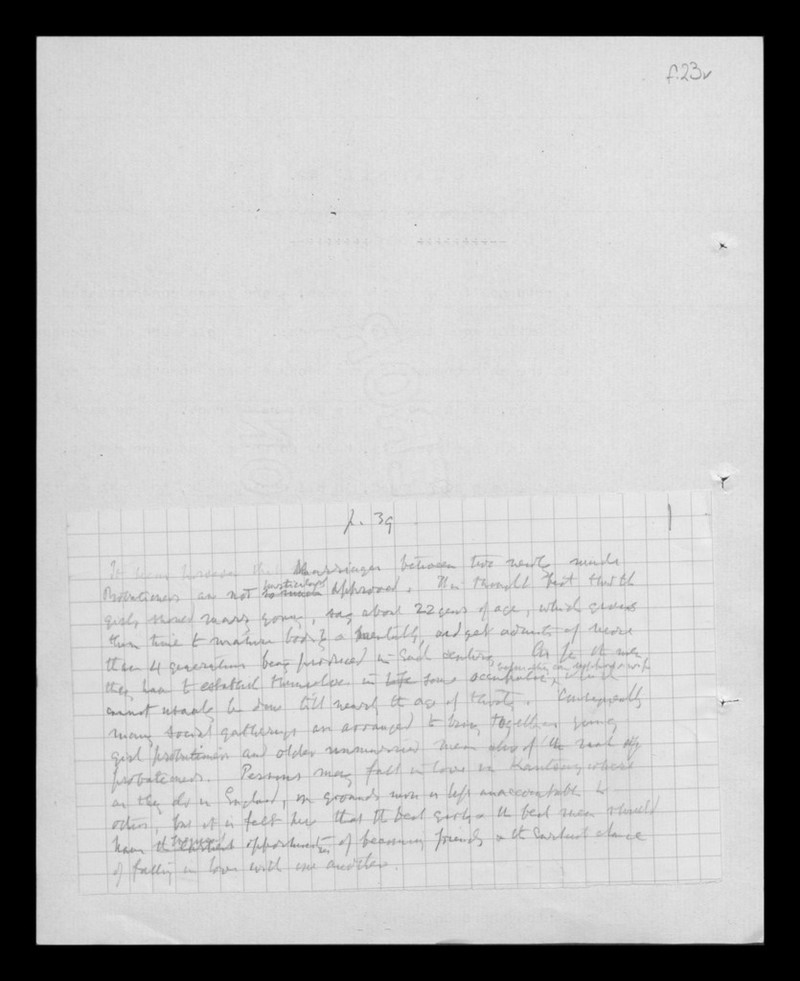 f.23v
p. 39
It Marriages between two newly made
Probationers are not particularly approved. thought that the
girls should marry young, say about 22 years of age, which gives
them time to mature bodily & mentally, and yet admits of more
than 4 generations being produced in each century. As for the men
they have to establish themselves in some occupation,
cannot usually be done till nearly the age of thirty. Consequently
many social gatherings are arranged to bring together young
girl probationers and older unmarried men also of the rank of
probationers. Persons may fall in love in Kantsaywhere
as they do in England, on grounds more or less unaccountable to
others, but it is felt here that the best girls & the best men should
have the opportunities of becoming friends & the earliest chance
of falling in love with one another.